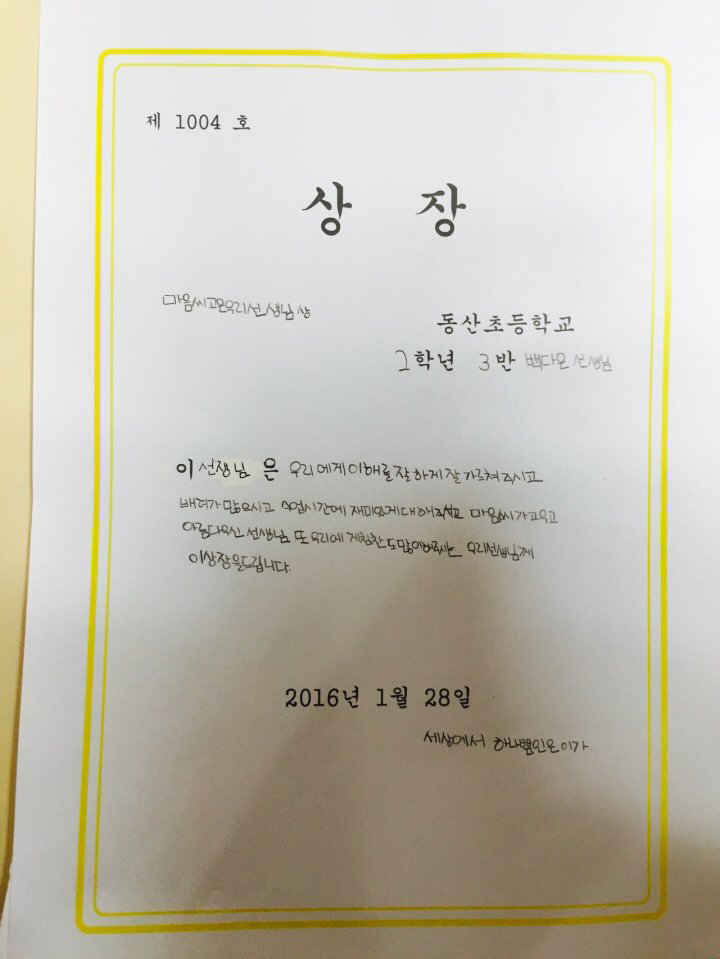 제 1004 호
상 장
마음씨고운우리선생님상
동산초등학교
2학년 3반 백다온 선생님
이 선생님 은 우리에게이해를잘하게잘가르쳐주시고
배려가많으시고 수업시간에 재미있게대해주시고 마음씨가고우고
아름다우신선생님 또우리에게칭찬도많이해주시는 우리선생님께
이상장을드립니다.
2016년 1월 28일
세상에서 하나뿐인온이가